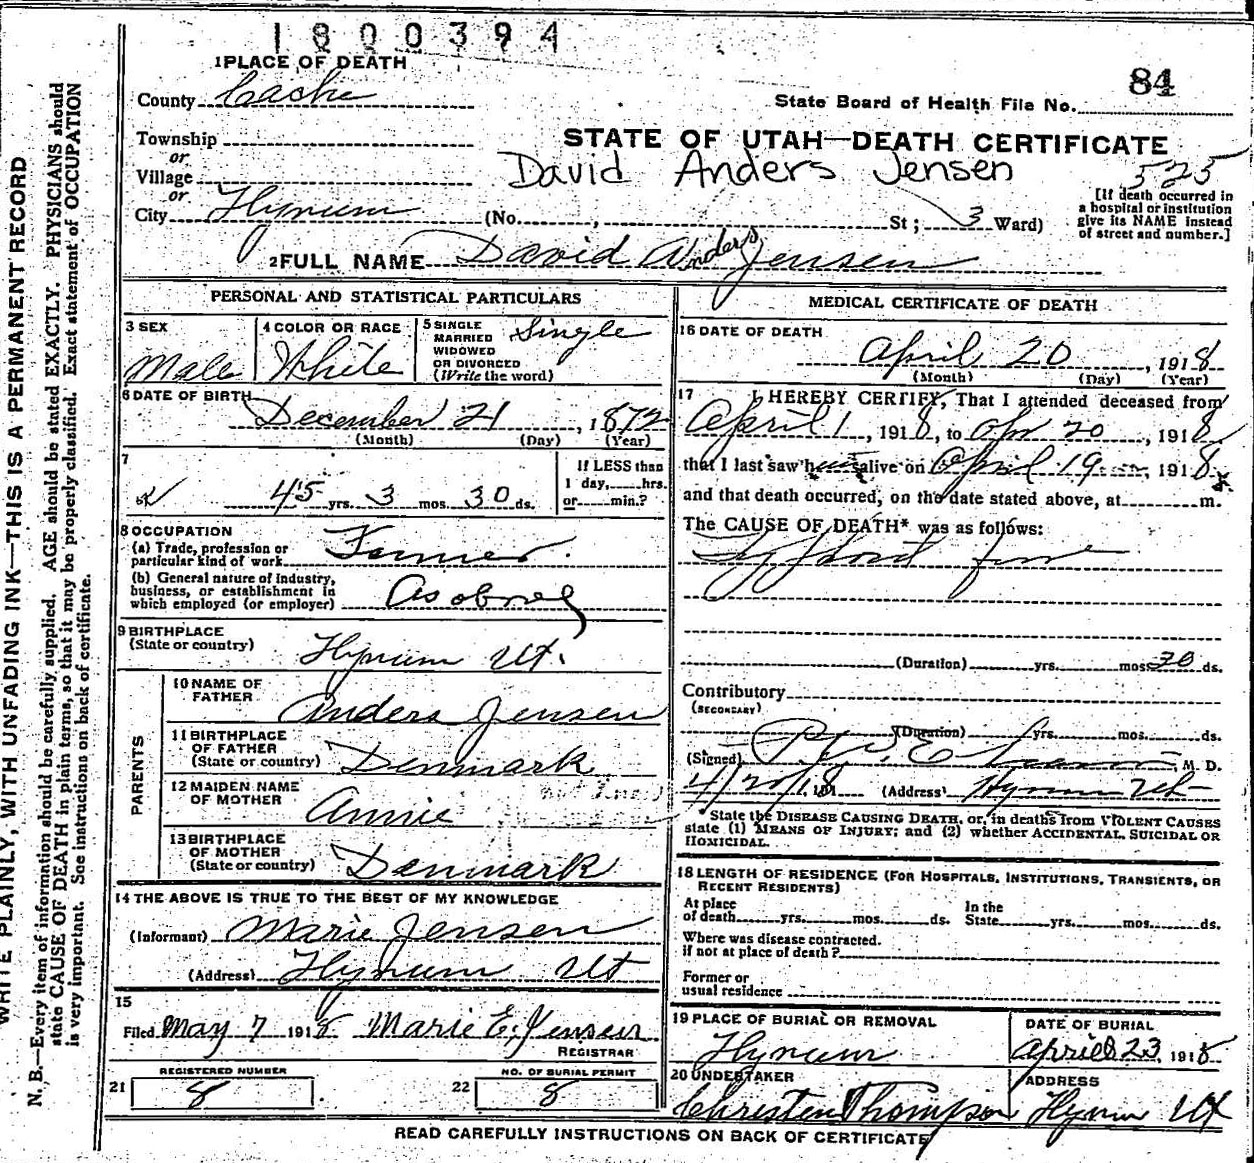 1800394
1 PLACE OF DEATH
84
County Cache
State Board of Health File No.
Township
STATE OF UTAH—DEATH CERTIFICATE
or
Village
David Anders Jensen 525
or
City Hyrum (No. , St ; 3 Ward)
[If death occurred in
a hospital or institution
give its NAME instead
of street and number.]
2 FULL NAME David Anders Jensen
PERSONAL AND STATISTICAL PARTICULARS
3 SEX
Male
4 COLOR OR RACE
White
5 SINGLE
MARRIED
WIDOWED
OR DIVORCED
(Write the word)
Single
6 DATE OF BIRTH
December 21, 1872
(Month) (Day) (Year)
7
45 yrs. 3 mos. 30 ds.
If LESS than
1 day, hrs.
or min.?
8 OCCUPATION
(a) Trade, profession or
particular kind of work Farmer.
(b) General nature of industry,
business, or establishment in
which employed (or employer)
9 BIRTHPLACE
(State or country) Hyrum Ut.
PARENTS
10 NAME OF
FATHER
Anders Jensen
11 BIRTHPLACE
OF FATHER
(State or country) Denmark
12 MAIDEN NAME
OF MOTHER
Annie
13 BIRTHPLACE
OF MOTHER
(State or country) Denmark
14 THE ABOVE IS TRUE TO THE BEST OF MY KNOWLEDGE
(Informant) Marie Jensen
(Address) Hyrum Ut
15
Filed May 7 1918 Marie E. Jensen
REGISTRAR
REGISTERED NUMBER
21 8
NO. OF BURIAL PERMIT
22 8
MEDICAL CERTIFICATE OF DEATH
16 DATE OF DEATH
April 20, 1918
(Month) (Day) (Year)
17 I HEREBY CERTIFY, That I attended deceased from
April 1, 1918, to Apr 20, 1918
that I last saw h alive on April 19, 1918
and that death occurred, on the date stated above, at m.
The CAUSE OF DEATH* was as follows:
(Duration) yrs. mos. 30 ds.
Contributory
(SECONDARY)
(Duration) yrs. mos. ds.
(Signed) M. D.
4/20/18 191 (Address) Hyrum Ut
*State the DISEASE CAUSING DEATH, or, in deaths from VIOLENT CAUSES
state (1) MEANS OF INJURY; and (2) whether ACCIDENTAL, SUICIDAL OR
HOMICIDAL.
18 LENGTH OF RESIDENCE (FOR HOSPITALS, INSTITUTIONS, TRANSIENTS, OR
RECENT RESIDENTS)
At place
of death yrs. mos. ds.
In the
State yrs. mos. ds.
Where was disease contracted.
if not at place of death?
Former or
usual residence
19 PLACE OF BURIAL OR REMOVAL
Hyrum
DATE OF BURIAL
April 23, 1918
20 UNDERTAKER
Christen Thompson
ADDRESS
Hyrum Ut
READ CAREFULLY INSTRUCTIONS ON BACK OF CERTIFICATE
WRITE PLAINLY, WITH UNFADING INK—THIS IS A PERMANENT RECORD
N. B.—Every item of information should be carefully supplied. AGE should be stated EXACTLY. PHYSICIANS should
state CAUSE OF DEATH in plain terms, so that it may be properly classified. Exact statement of OCCUPATION
is very important. See instructions on back of certificate.